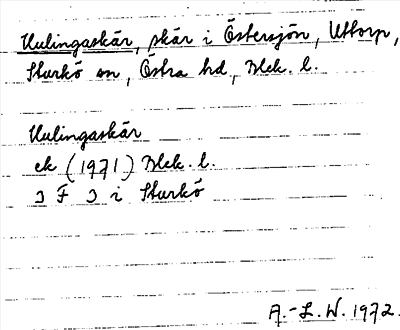 Kulingaskär, skär i Östersjön, Uttorp,
Sturkö sn, Östra hd, Blek. l.
Kulingaskär
ek (1971) Blek. l.
3 F 3 i Sturkö
A.-L. W. 1972.